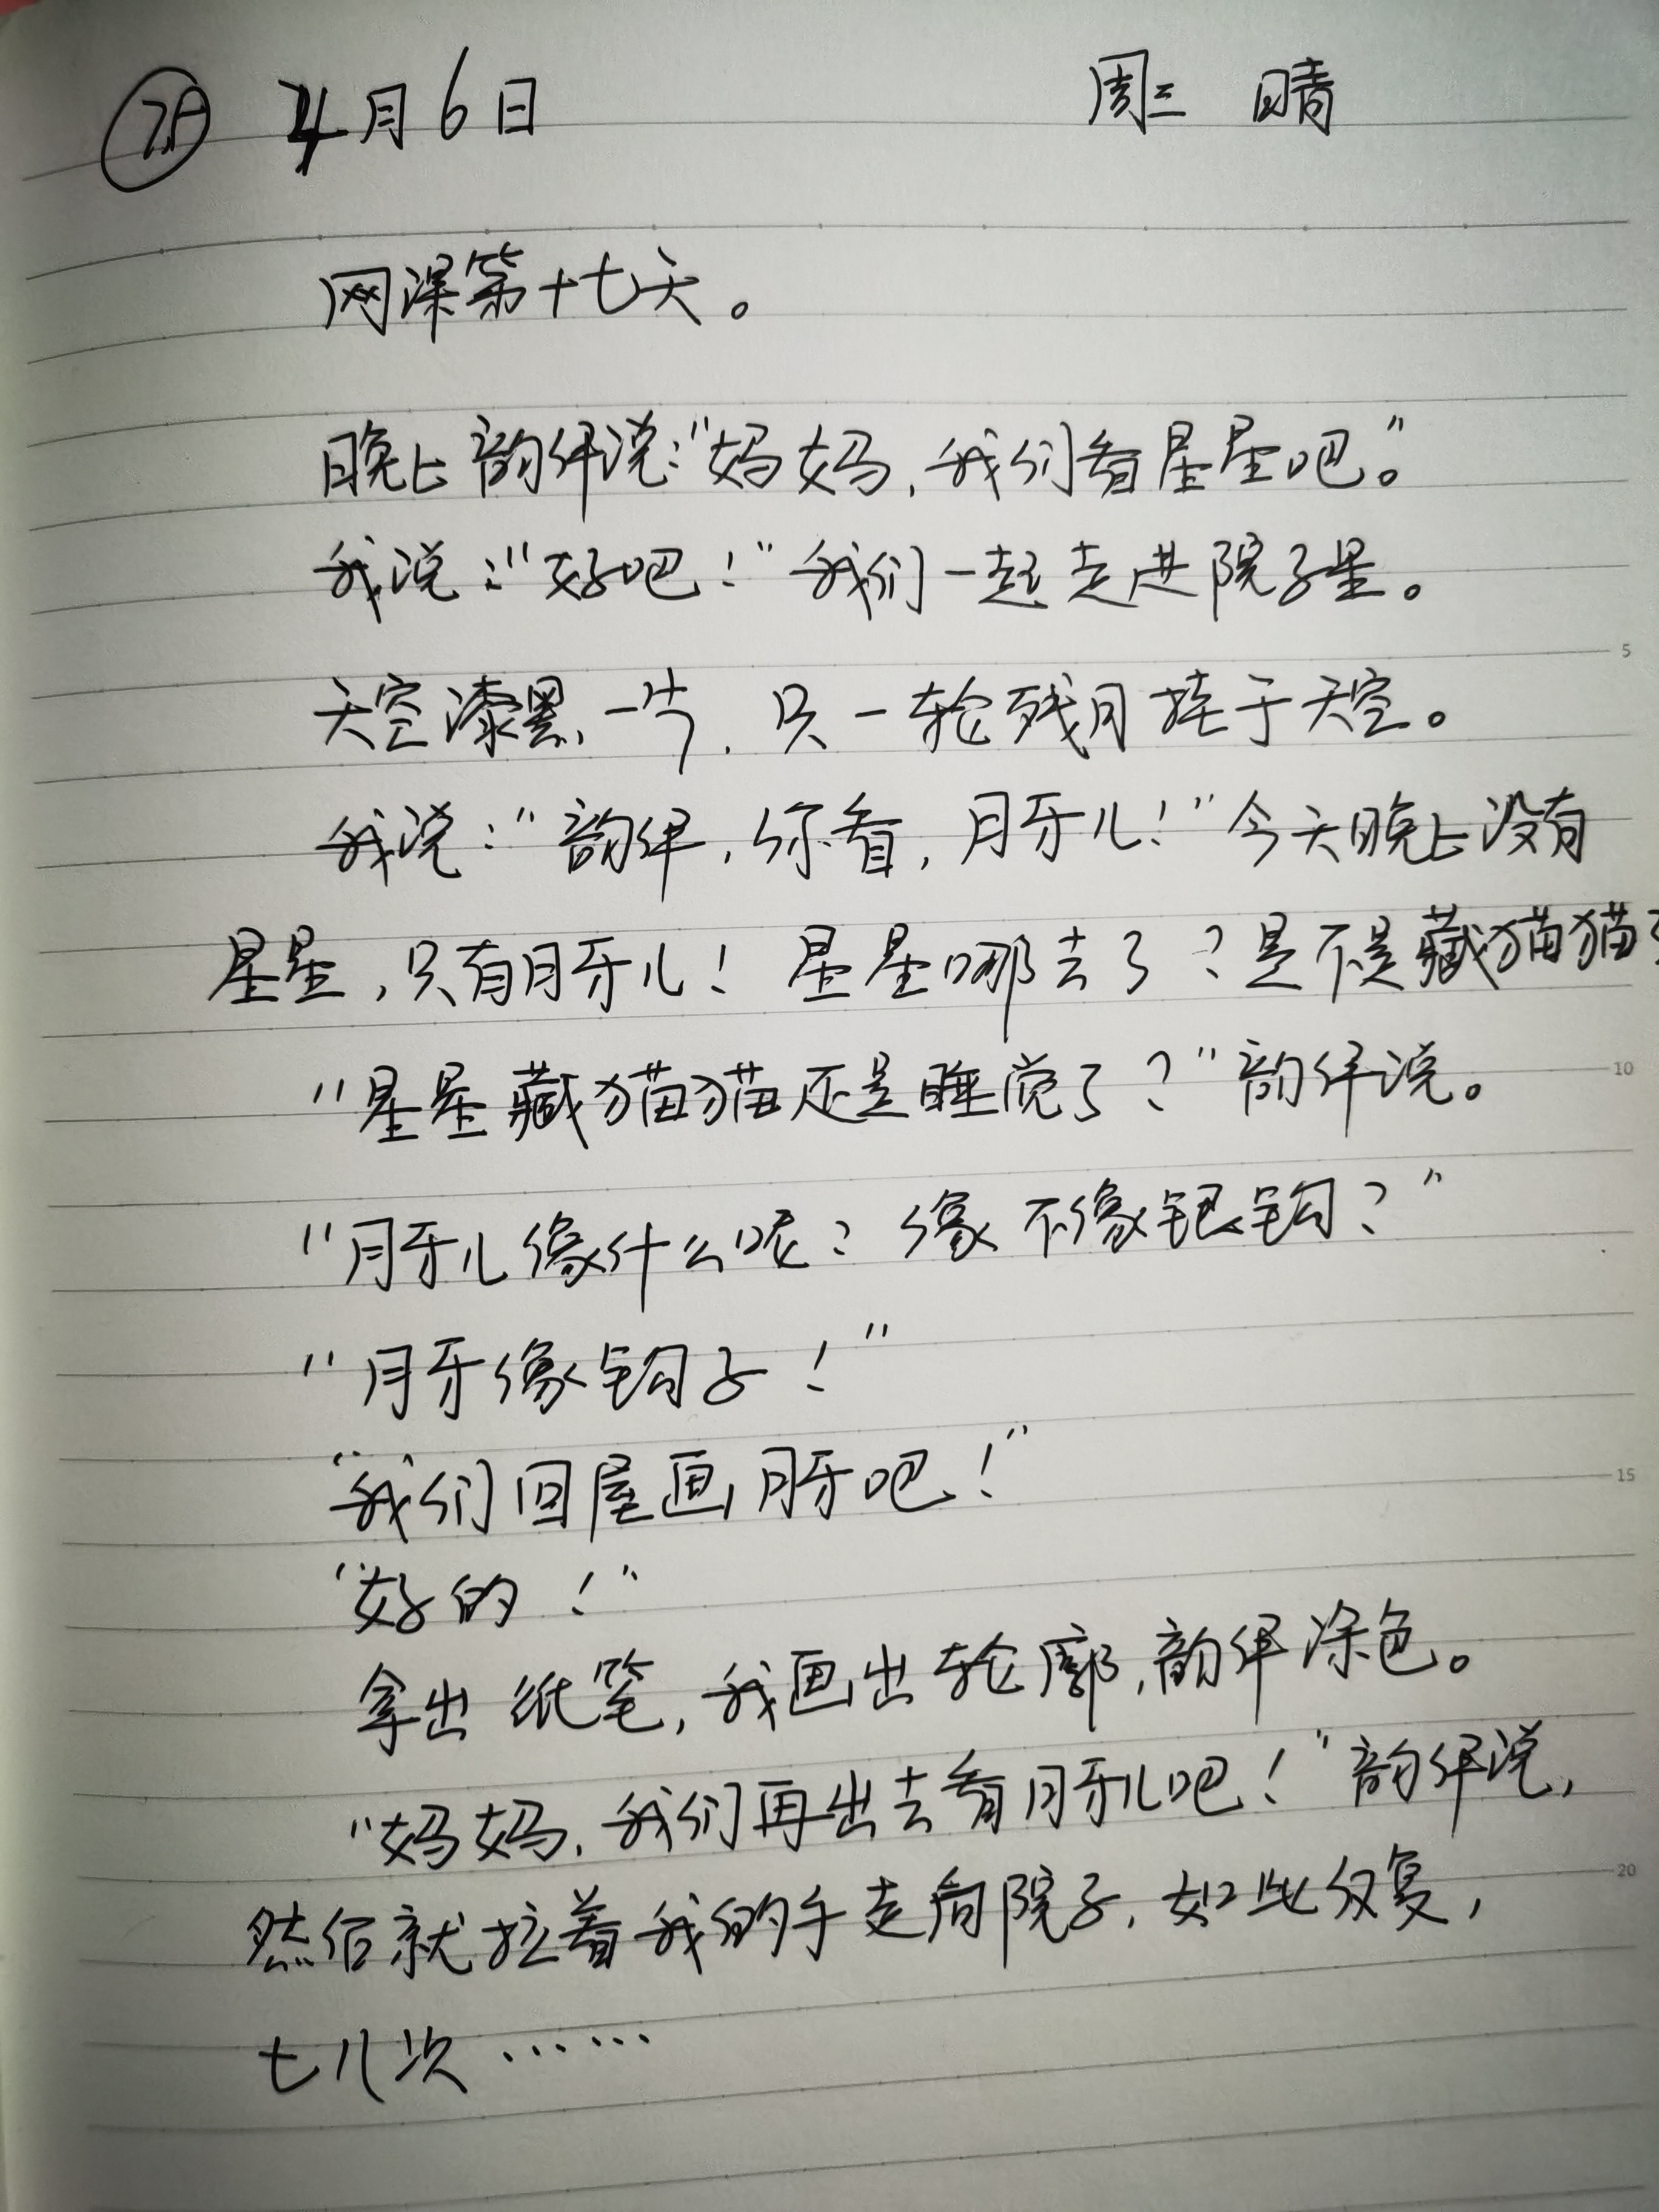 4月6日 周三 晴
网课第十七天。
晚上韵伊说:“妈妈,我们看星星吧。”
我说:“好吧!”我们一起走进院子里。
天空漆黑一片,只一轮残月挂于天空。
我说:“韵伊,你看,月牙儿!”今天晚上没有
星星,只有月牙儿!星星哪去了?是不是藏猫猫
“星星藏猫猫还是睡觉了?”韵伊说。
“月牙儿像什么呢?像不像银钩?”
“月牙像钩子!”
“我们回屋画月牙吧!”
“好的!”
拿出纸笔,我画出轮廓,韵伊涂色。
“妈妈,我们再出去看月牙儿吧!”韵伊说,
然后就拉着我的手走向院子,如此反复,
七八次……
5
10
15
20